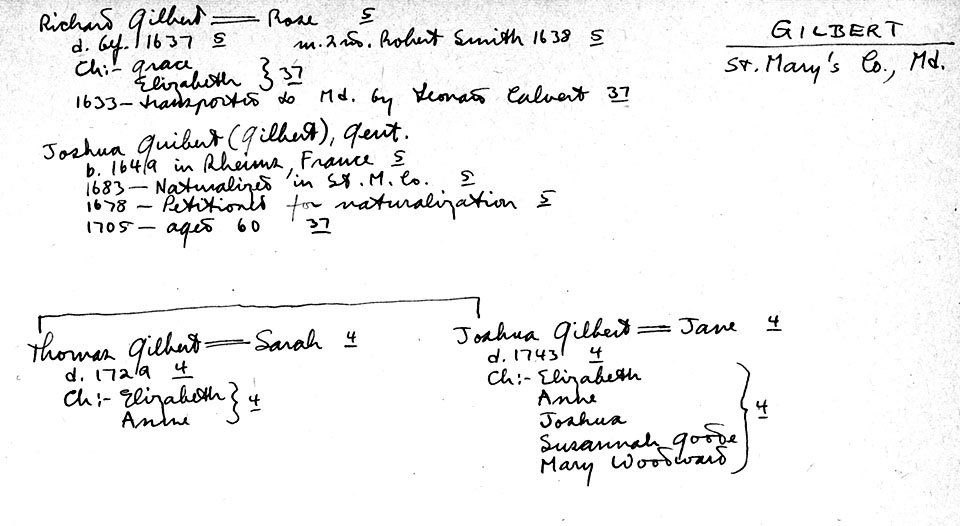 GILBERT
St. Mary's Co., Md.
Richard Gilbert = Rose 5
d. by 1637 5 m. 2nd. Robert Smith 1638 5
Ch:- Grace
Elizabeth } 37
1633 - transported to Md. by Leonard Calvert 37
Joshua Guibert (Gilbert), Gent.
b. 1649 in Rheims, France 5
1683 - Naturalized in St. M. Co. 5
1678 - Petitioned for naturalization 5
1705 - aged 60 37
Thomas Gilbert = Sarah 4
d. 1729 4
Ch:- Elizabeth
Anne } 4
Joshua Gilbert = Jane 4
d. 1743 4
Ch:- Elizabeth
Anne
Joshua } 4
Susannah Goode
Mary Woodward